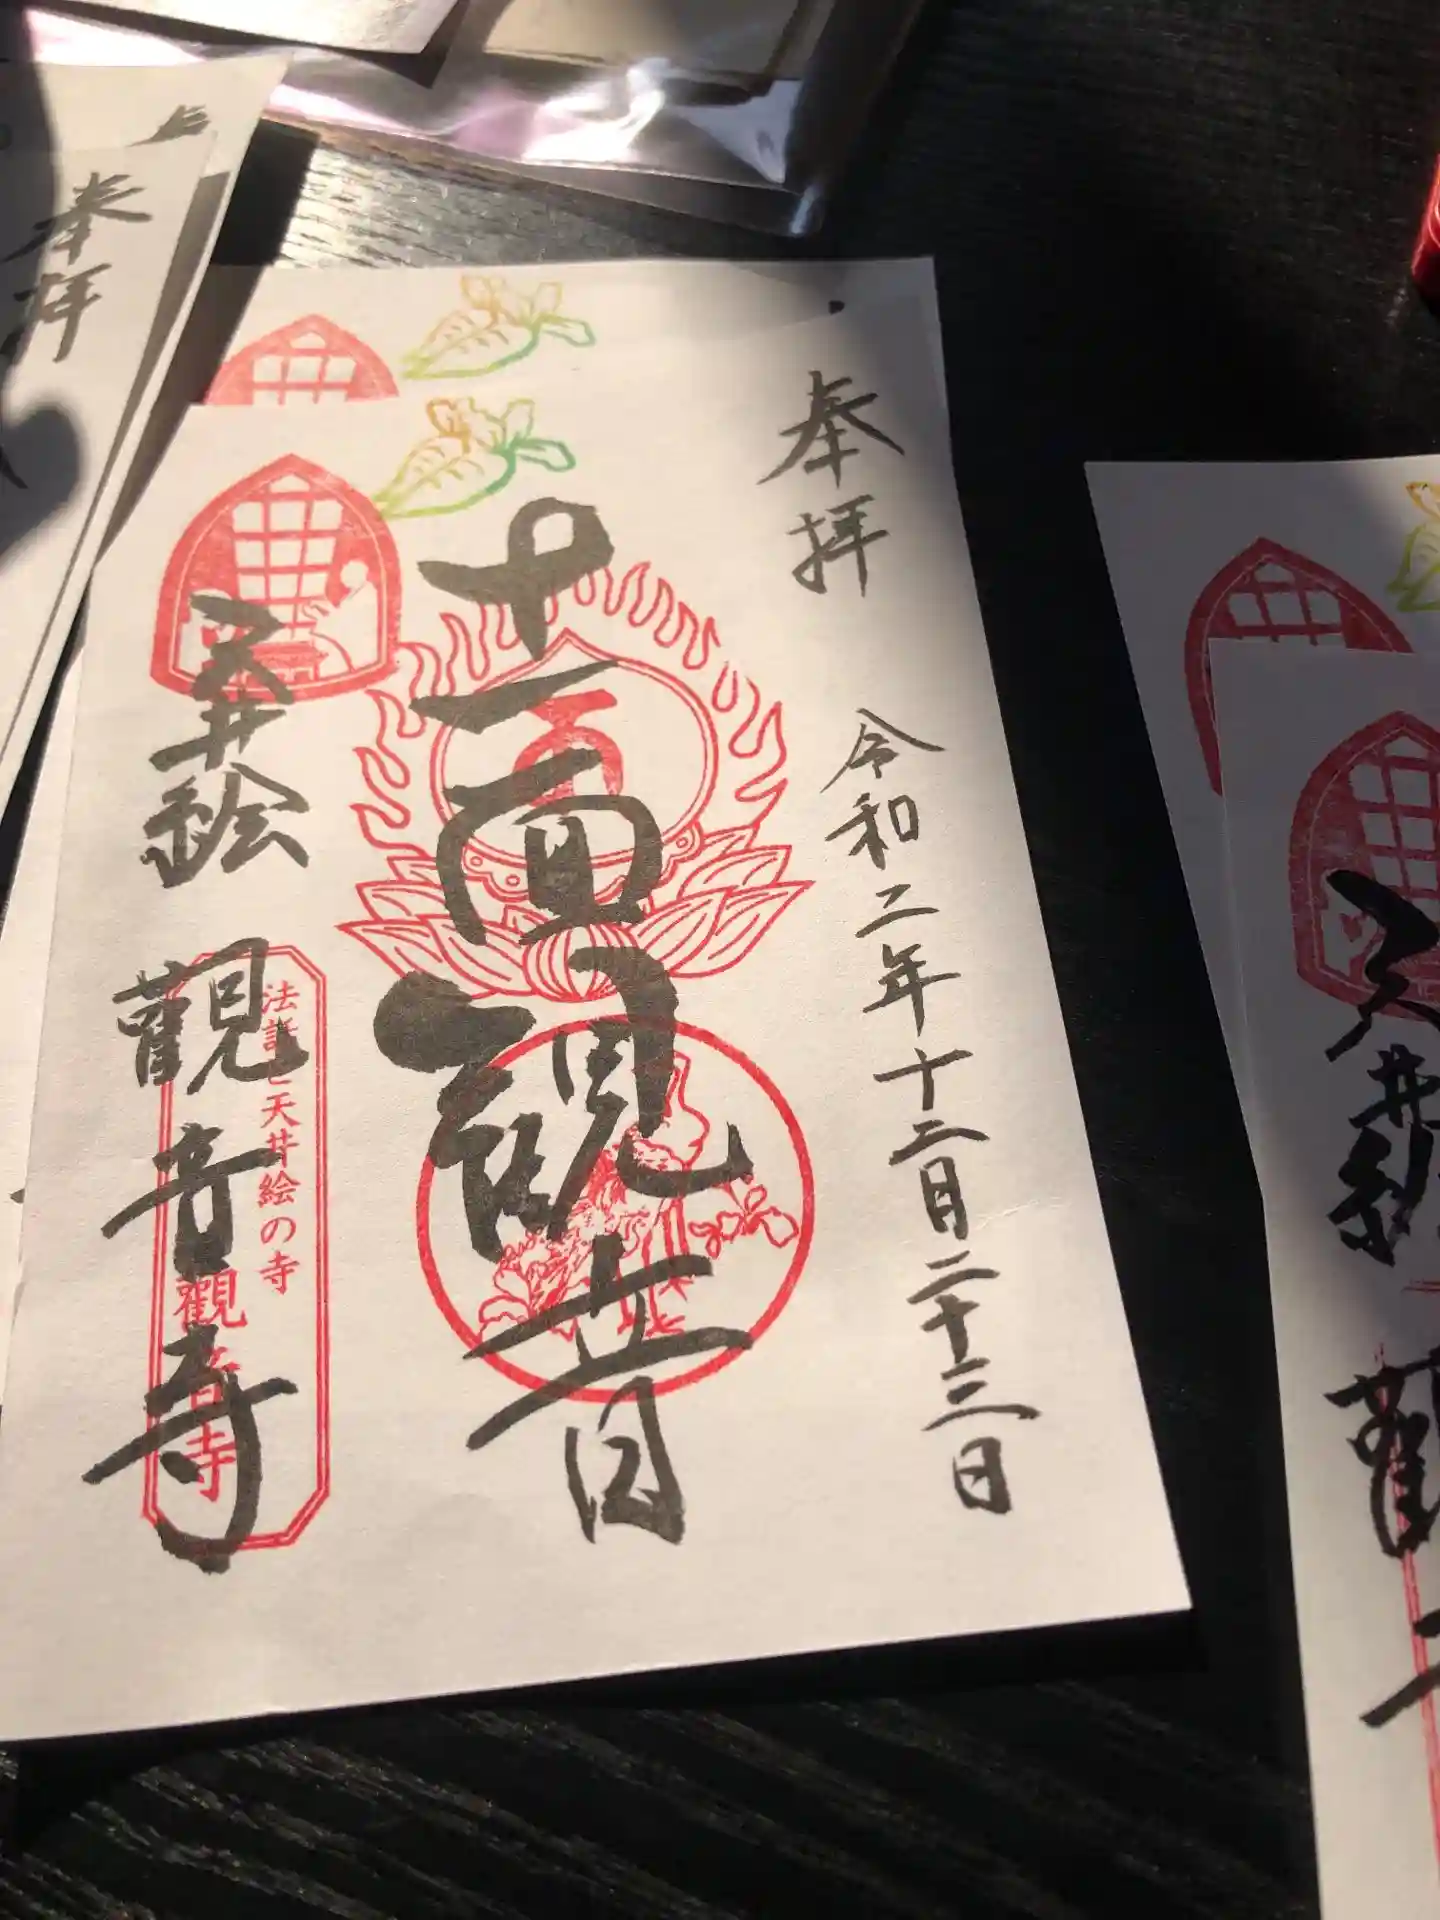 奉拝
令和二年十二月二十三日
十一面観音
天井絵
觀音寺
法話と天井絵の寺
觀音寺
奉拝
天井絵